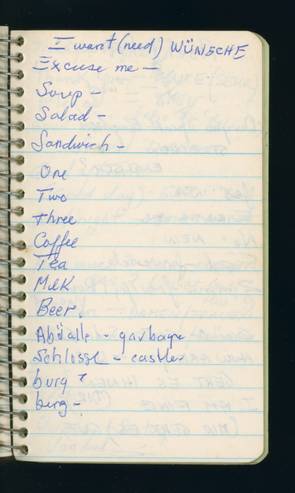 I want (need) WÜNSCHE
Excuse me —
Soup -
Salad -
Sandwich -
One
Two
Three
Coffee
Tea
Milk
Beer.
Abfalle - garbage
Schlosse - castle
burg ?
berg -